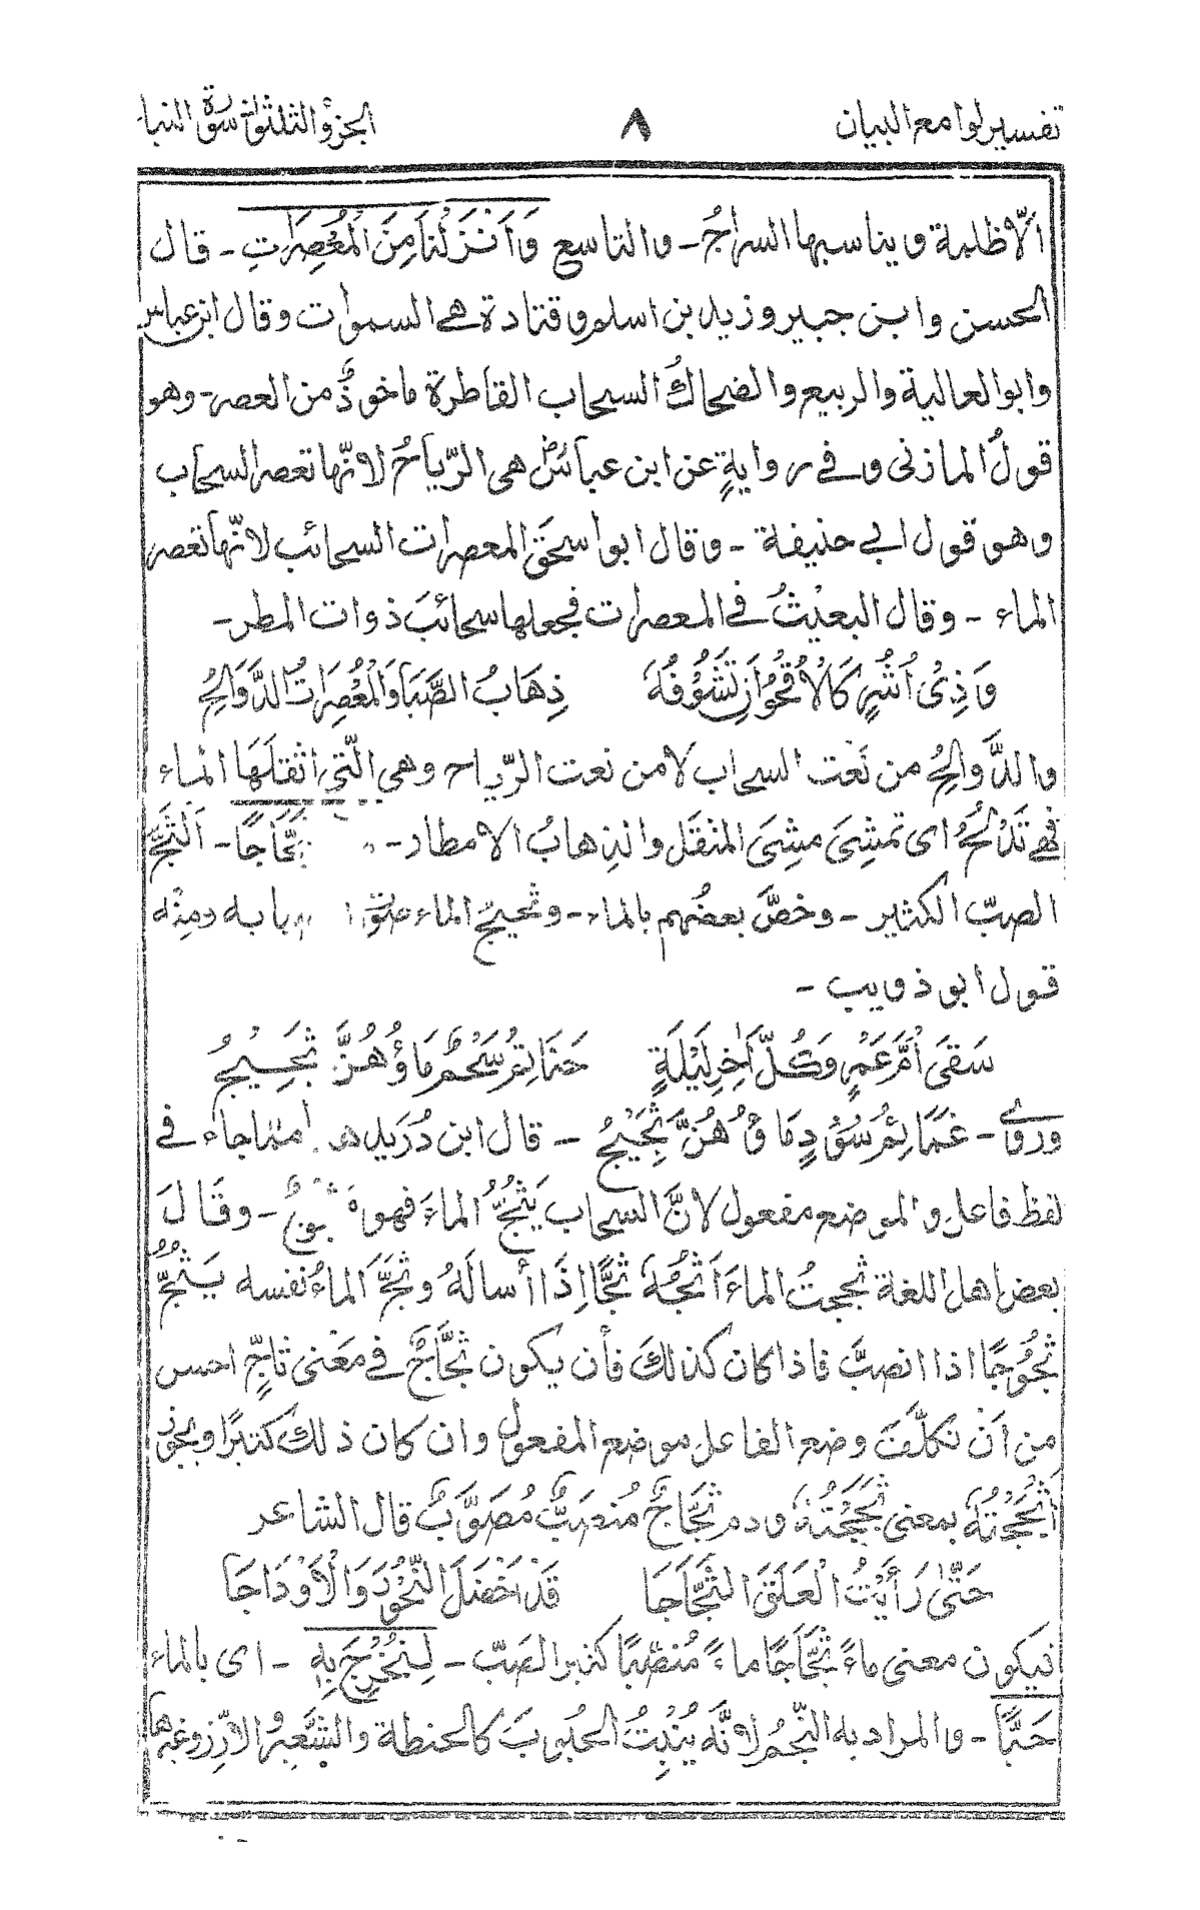 تفسير لوامع البيان
٨
الجزؤ الثلثون سورة النبا
الّاظلمة ويناسبها السراجُ - والتاسع وَاَنْزَلْنَا مِنَ الْمُعْصِرَاتِ - قال
الحسن وابن جبير وزيد بن اسلم وقتادة هي السموات وقال ابن عباس
وابو العالية والربيع والضحاكُ السحاب القاطرة ماخوذٌ من العصر - وهو
قولُ المازنى وفي روايةٍ عن ابن عباسٍ هى الرّياحُ لانّها تعصر السحاب
وهو قول ابي حنيفة - وقال ابو اسحٰق المعصرات السحائب لانّها تعصر
الماء - وقال البعيثُ في المعصرات فجعلها سحائبَ ذوات المطر -
وَذِىْ اُشُرٍ كَالْاُقْحُوَانِ تَشُوْفُهٗ ذِهَابُ الصَّبَا وَالْمُعْصِرَاتُ الدَّوَالِحُ
والدَّوالِحُ من نَعْت السحاب لا من نعت الرّياح وهي الّتي اثقلَهَا الماء
فهي تَدْلَحُ اى تمشِىَ مشِىَ المثقل والذِهابُ الامطار - ثَجَّاجًا - اَلثَّجُّ
الصبّ الكثير - وخصَّ بعضُهم بالماء - وثجيجُ الماء صوته بابه ومِنْه
قول ابو ذويب -
سَقَى اُمَّ عَمْرٍ وَكُلَّ اٰخِرِ لَيْلَةٍ حَنَاتِمُ سُحْمٌ مَاؤُهُنَّ ثَجِيْجُ
وروى - غَمَائِمُ سُوْدٍ مَاؤُهُنَّ ثَجِيْجُ - قال ابن دُرَيد هذا مما جاء في
لفظ فاعل والموضع مفعول لانَّ السحاب يَثُجُّ الماءَ فهو - وقَالَ
بعض اهل اللغة ثججتُ الماءَ اَثُجُّهٗ ثَجًّا اِذَا أسالَهُ وثَجَّ الماءُ نفسه يَثُجُّ
ثُجُوْجًا اذا انصبَّ فاذا كان كذلكَ فأن يكون ثَجَّاجٌ في مَعْنى ثاجٍّ احسن
من اَنْ نكلّفَ وضع الفاعل موضع المفعول وان كان ذلكَ كثيرًا ويجوز
اَثْجَجْتُهٗ بمعنى ثَجَجْتُهٗ ودم ثَجَّاجٌ مُنْصَبٌّ مُصَوَّبٌ قال الشاعر
حَتّٰى رَأَيْتُ الْعَلَقَ الثَّجَّاجَا قَدْ اَخْضَلَ النُّحُوْرَ وَالْاَوْدَاجَا
فيكون معنى ماءً ثَجَّاجًا ماءً مُنْصَبًّا كثير الصَبّ - لِنُخْرِجَ بِهٖ - اى بالماء
حَبًّا - والمراد به النّجمُ لانَّه يُنْبِتُ الحُبُوبَ كالحنطة والشَّعِيْرِ والارّز وغيرها